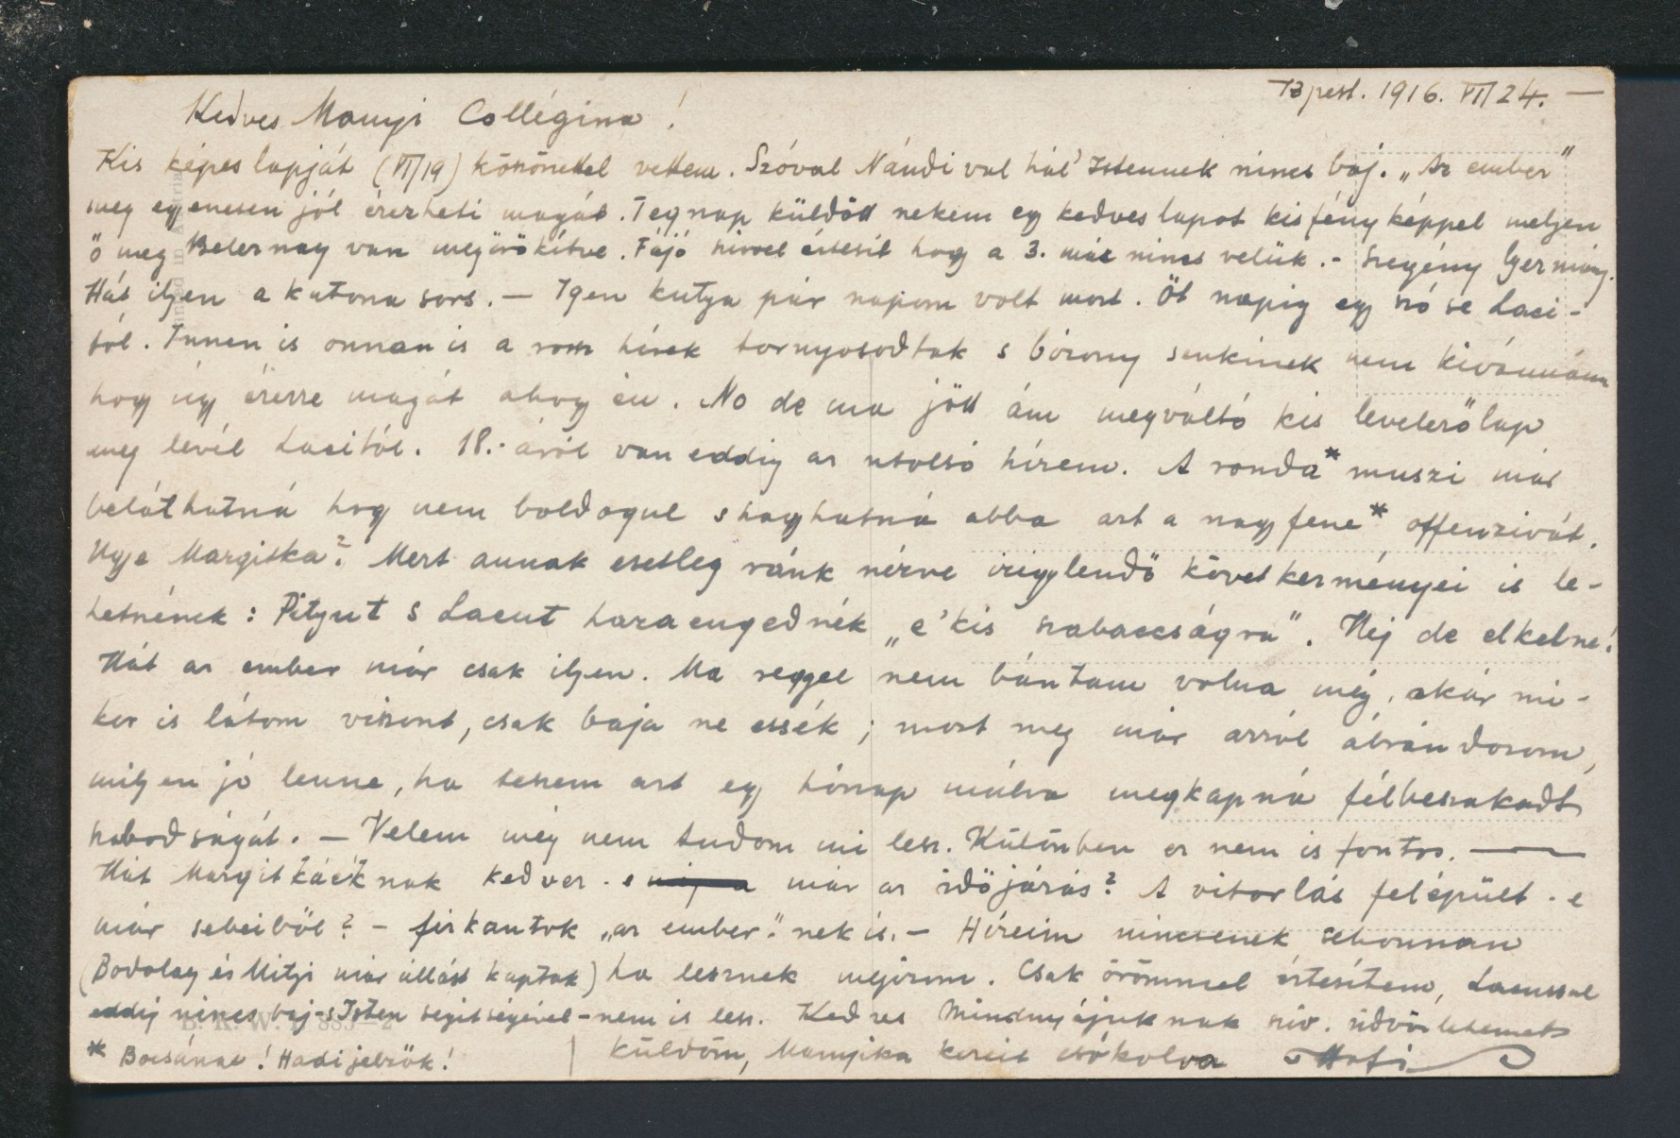 Bpest. 1916. VI/24. —
Kedves Manyi Collégina!
Kis képes lapját (VI/19) köszönettel vettem. Szóval Nándi val hál' Istennek nincs baj. „Az ember"
meg egyenesen jól érezheti magát. Tegnap küldött nekem egy kedves lapot kis fényképpel melyen
ő meg Belernay van megörökítve. Fájó szívvel értesít hogy a 3. már nincs velük. - Szegény Germány.
Hát ilyen a katona sors. — Igen kutya pár napom volt most. Öt napig egy szó se Laci-
tól. Innen is onnan is a rossz hírek tornyosodtak s bizony senkinek nem kívánnám
hogy úgy érezze magát ahogy én. No de ma jött ám megváltó kis levelezőlap
meg levél Lacitól. 18.-áról van eddig az utolsó hírem. A ronda* muszi már
beláthatná hogy nem boldogul s hagyhatná abba azt a nagy fene* offenzivát.
Ugye Margitka? Mert annak esetleg ránk nézve irigylendő következményei is le-
hetnének: Pityut s Lacut hazaengednék „e' kis szabaccságra". Hej de elkelne!
Hát az ember már csak ilyen. Ma reggel nem bántam volna még, akár mi-
kor is látom viszont, csak baja ne essék; most meg már arról ábrándozom,
milyen jó lenne, ha teszem azt egy hónap múlva megkapná félbeszakadt
szabodságát. — Velem még nem tudom mi lesz. Különben ez nem is fontos. —
Hát Margitkáéknak kedvez - e már az időjárás? A vitorlás felépült - e
már sebeiből? - firkantok „az ember" nek is. - Híreim nincsenek sehonnan
(Bodolay és Mityi már állást kaptak) ha lesznek megírom. Csak örömmel értesítem, Lacussal
eddig nincs baj - s Isten segítségével - nem is lesz. Kedves Mindnyájuknak szív. üdvözletemet
* Bocsánat! Hadi jelzők! | küldöm, Manyika kezeit csókolva Mafi